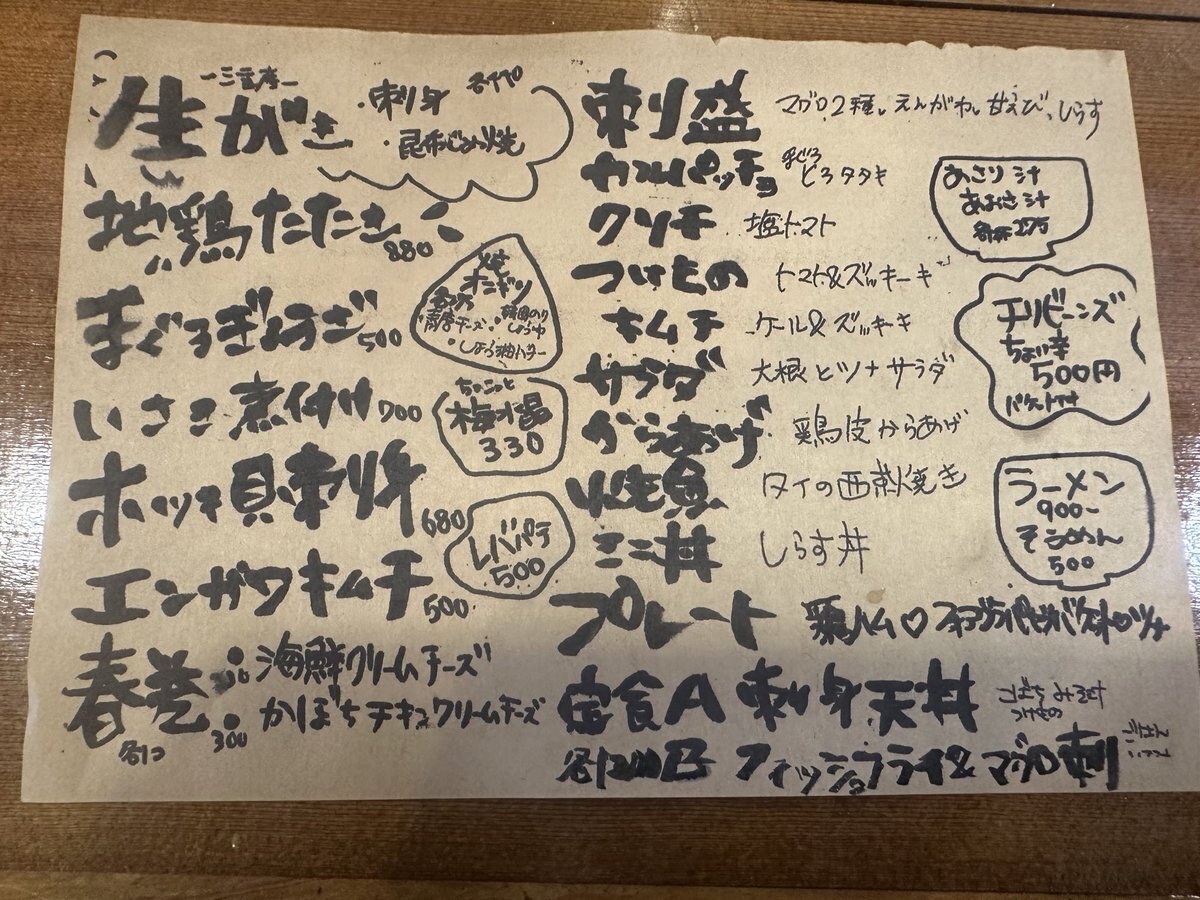 生がき
ー三重産ー
・刺身
・昆布じめ炙
地鶏たたき
880
まぐろぎょうざ 500
いさき煮付け 700
ホッキ貝刺身 680
エンガワキムチ 500
春巻
・海鮮クリームチーズ
・かぼちチキュクリームチーズ
各1コ 300
オニギリ
・青唐チーズ
ちょこっと
梅水晶
330
レバパテ
500
刺盛 マグロ2種、えんがわ、甘えび、しらす
カルパッチョ まぐろ とろタタキ
クリチ 塩トマト
つけもの トマト&ズッキーギ
キムチ ケール&ズッキーギ
サラダ 大根とツナサラダ
からあげ 鶏皮からあげ
やき魚 タイの西京焼き
ミニ丼 しらす丼
プレート 鶏ハム♡
定食A 刺身天丼 こばち みそ汁 つけもの
各1200 B フィッシュフライ&マグロ刺
あさり汁
あおさ汁
各杯275
チリビーンズ
ちょい辛
500円
バケット付
ラーメン
900ー
そうめん
500